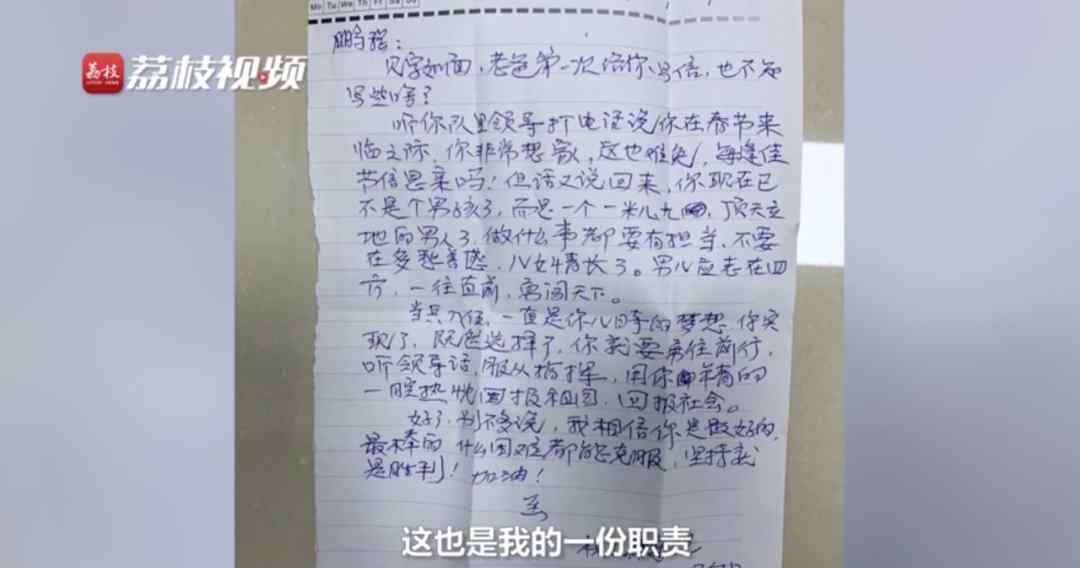 Mo Tu We Th Fr Sa Su
荔枝
荔枝视频
鹏程：
见字如面，老爸第一次给你写信，也不知
写些啥？
听你队里领导打电话说你在春节来
临之际，你非常想家，这也难免，每逢佳
节倍思亲吗！但话又说回来，你现在已
不是个男孩了，而是一个一米八九，顶天立
地的男人了，做什么事都要有担当，不要
在多愁善感，儿女情长了。男儿应志在四
方，一往直前，勇闯天下。
当兵入伍，一直是你儿时的梦想，你实
现了，既然选择了，你就要勇往前行，
听领导话，服从指挥，用你年青的
一腔热忱回报祖国，回报社会。
好了，别不多说，我相信你是最好的，
最棒的，什么困难都能克服，坚持就
是胜利！加油！
这也是我的一份职责